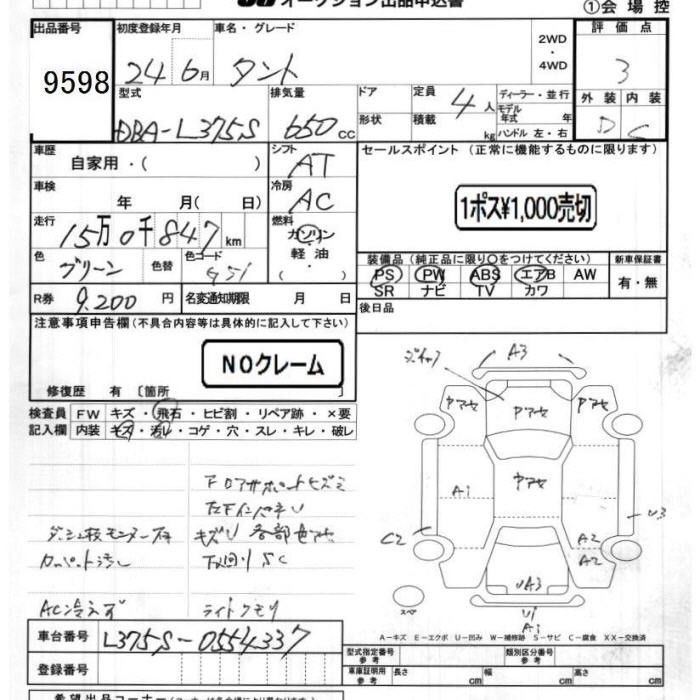 オークション出品申込書
①会場控
出品番号
9598
初度登録年月
24 6月
車名・グレード
タント
2WD
・
4WD
評価点
3
外装 内装
D C
型式
DBA-L375S
排気量
650 cc
ドア
形状
定員
4人
積載
kg
ディーラー・並行
モデル
年式 年
ハンドル 左・右
車歴
自家用・( )
シフト
AT
セールスポイント (正常に機能するものに限ります)
1ポス¥1,000売切
車検
年 月( 日)
冷房
AC
走行
15万0千847km
燃料
ガソリン
軽油
・
( )
色
グリーン
色替
色コード
装備品(純正品に限り○をつけてください)
PS PW ABS エアB AW
SR ナビ TV カワ
新車保証書
有・無
R券
9,200円
名変通知期限 月 日
後日品
注意事項申告欄(不具合内容等は具体的に記入して下さい)
NOクレーム
修復歴 有 〔箇所 〕
検査員
記入欄
FW キズ・飛石・ヒビ割・リペア跡・×要
内装 キズ・汚レ・コゲ・穴・スレ・キレ・破レ
フロアサポートヒズミ
キズU 各部色アセ
下回りSC
AC冷えず
ライトクモリ
A3
ヤアセ
ヤアセ
ヤアセ
ヤアセ
A1
U3
C2
A2
A2
UA3
U1
A1
スペア
A-キズ E-エクボ U-凹み W-補修跡 S-サビ C-腐食 XX-交換済
車台番号
L375S-0554337
登録番号
型式指定番号
参考
類別区分番号
参考
車庫証明用
参考
長さ
幅
高さ
希望出品コーナー